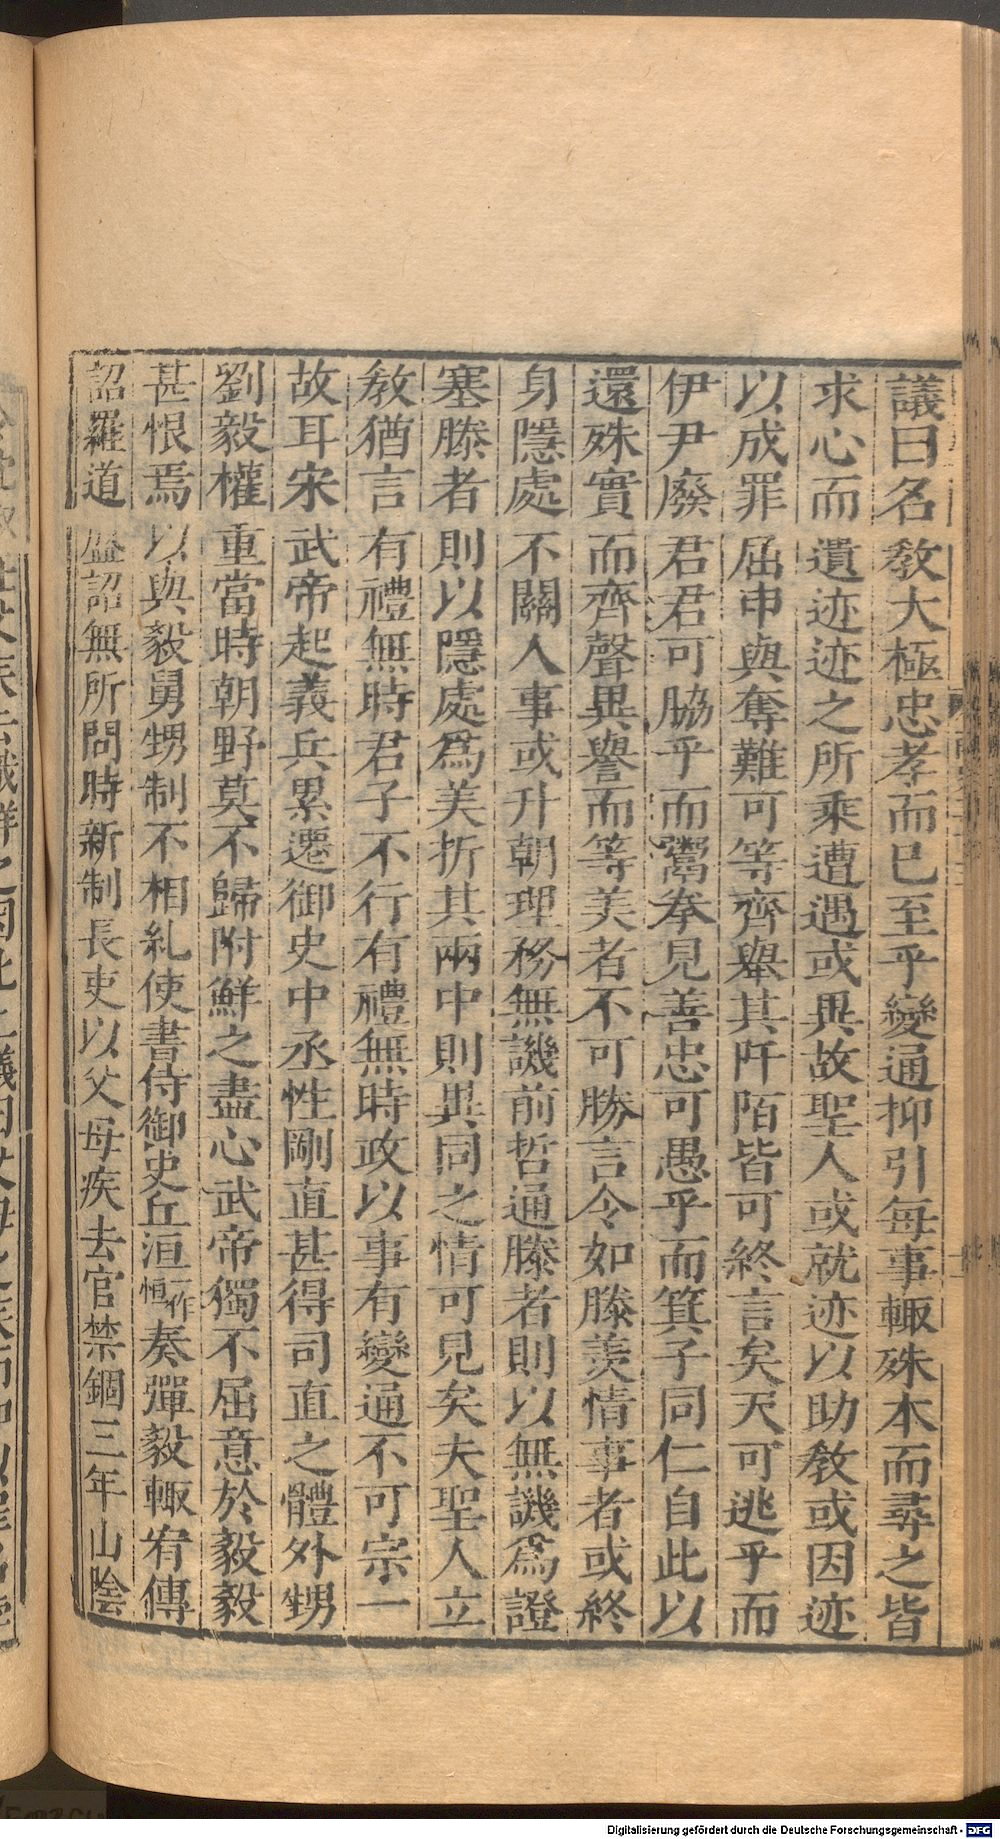 議曰名教大極忠孝而已至乎變通抑引每事輙殊本而尋之皆
求心而遺迹迹之所乘遭遇或異故聖人或就迹以助教或因迹
以成罪屈申與奪難可等齊舉其阡陌皆可終言矣天可逃乎而
伊尹廢君君可脇乎而鬻拳見善忠可愚乎而箕子同仁自此以
還殊實而齊聲異譽而等美者不可勝言令如滕羨情事者或終
身隱處不關人事或升朝理務無譏前哲通滕者則以無譏爲證
塞滕者則以隱處爲美折其兩中則異同之情可見矣夫聖人立
教猶言有禮無時君子不行有禮無時政以事有變通不可宗一
故耳宋武帝起義兵累遷御史中丞性剛直甚得司直之體外甥
劉毅權重當時朝野莫不歸附鮮之盡心武帝獨不屈意於毅毅
甚恨焉以與毅舅甥制不相糺使書侍御史丘洹一作恒奏彈毅輙宥傳
詔羅道盛詔無所問時新制長吏以父母疾去官禁錮三年山陰
Digitalisierung gefördert durch die Deutsche Forschungsgemeinschaft - DFG